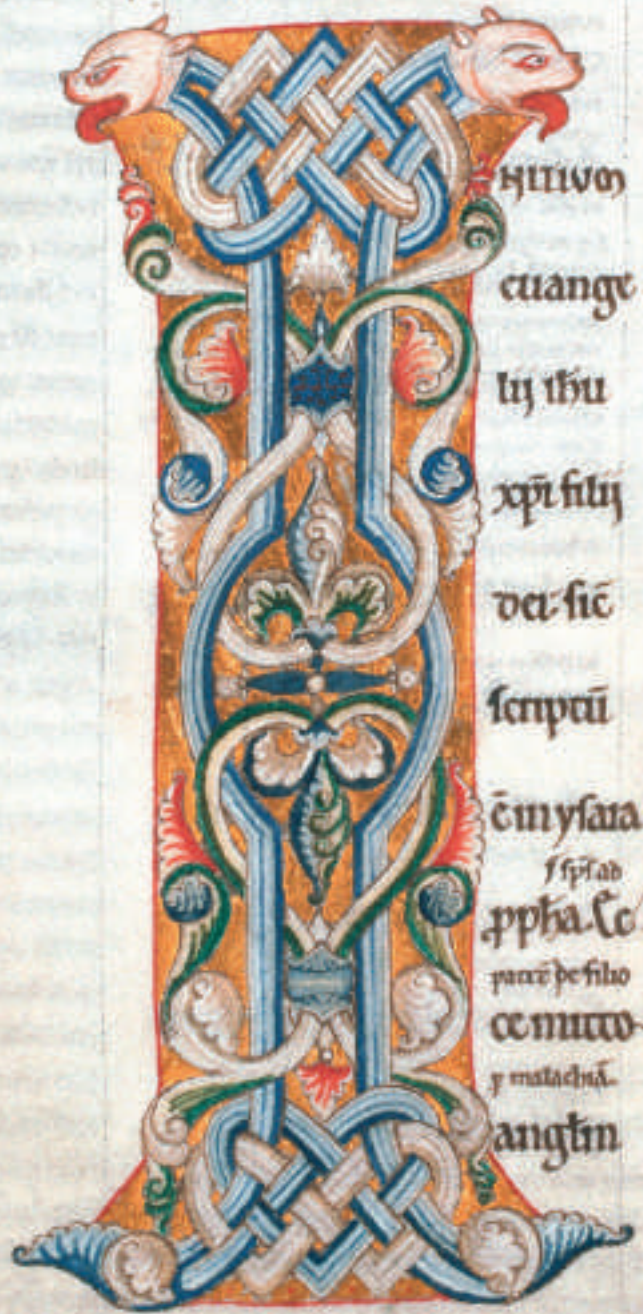 NITIUM
euange
lij ihu
xpi filij
dei· sic̄
scriptū
ē in ysaia
ſ sps ad
ppha· Ec
patrē de filio
ce mitto
p malachiā.
anglm